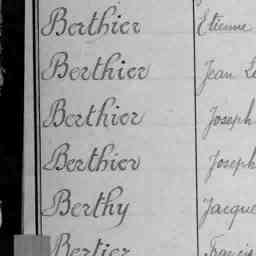 Berthier Etienne
Berthier Jean
Berthier Joseph
Berthier Joseph
Berthy
Bertier